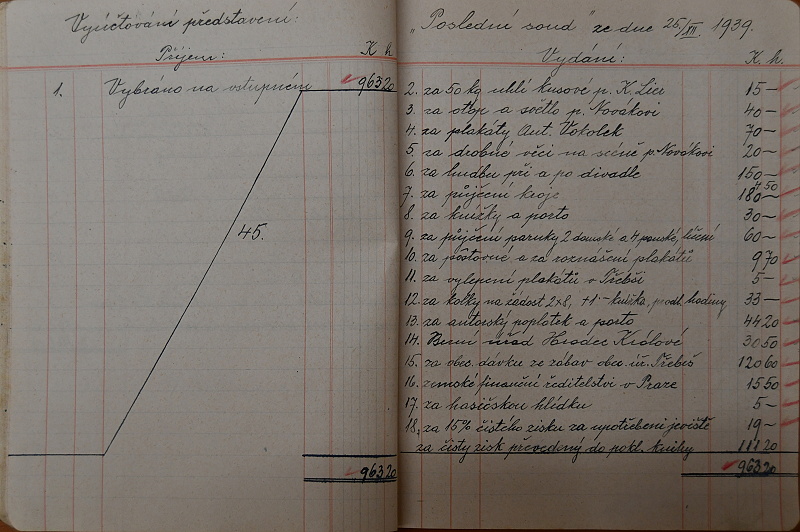 Vyúčtování představení:
Příjem: K h
1. Vybráno na vstupném 963 20
45.
963 20
"Poslední soud" ze dne 26/XII. 1939.
Vydání: K. h.
2. za 50 kg uhlí kusové p. K. 15 —
3. za otop a světlo p. Novákovi 40 —
4. za plakáty Ant. Vokolek 70 —
5. za drobné věci na scéně p. Novákovi 20 —
6. za hudbu při a po divadle 150 —
7. za půjčení kroje 180 4 50
8. za knížky a porto 30 —
9. za půjčení paruky 2 damské a 4 panské, líčení 60 —
10. za poštovné a za roznášení plakátů 9 70
11. za vylepení plakátů v Třebši 5 —
12. za kolky na žádost 2x8, +1 — knížka, prodl. hodiny 33 —
13. za autorský poplatek a porto 44 20
14. Berní úřad Hradec Králové 30 50
15. za obec. dávku ze zábav obec. úř. Třebeš 120 60
16. zemské finanční ředitelství v Praze 15 50
17. za hasičskou hlídku 5 —
18. za 15% čistého zisku za upotřebení jeviště 19 —
za čistý zisk převedený do pokl. knihy 111 20
963 20